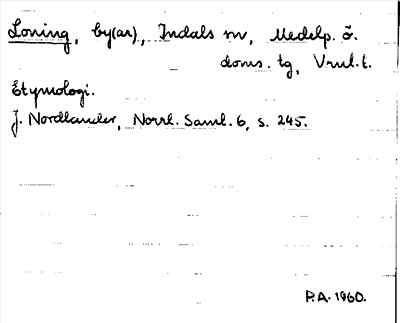 Loning, by(ar), Indals sn, Medelp. ö.
doms. tg, Vnrl. t.
Etymologi.
J. Nordlander, Norrl. Saml. 6, s. 245.
P.A. 1960.